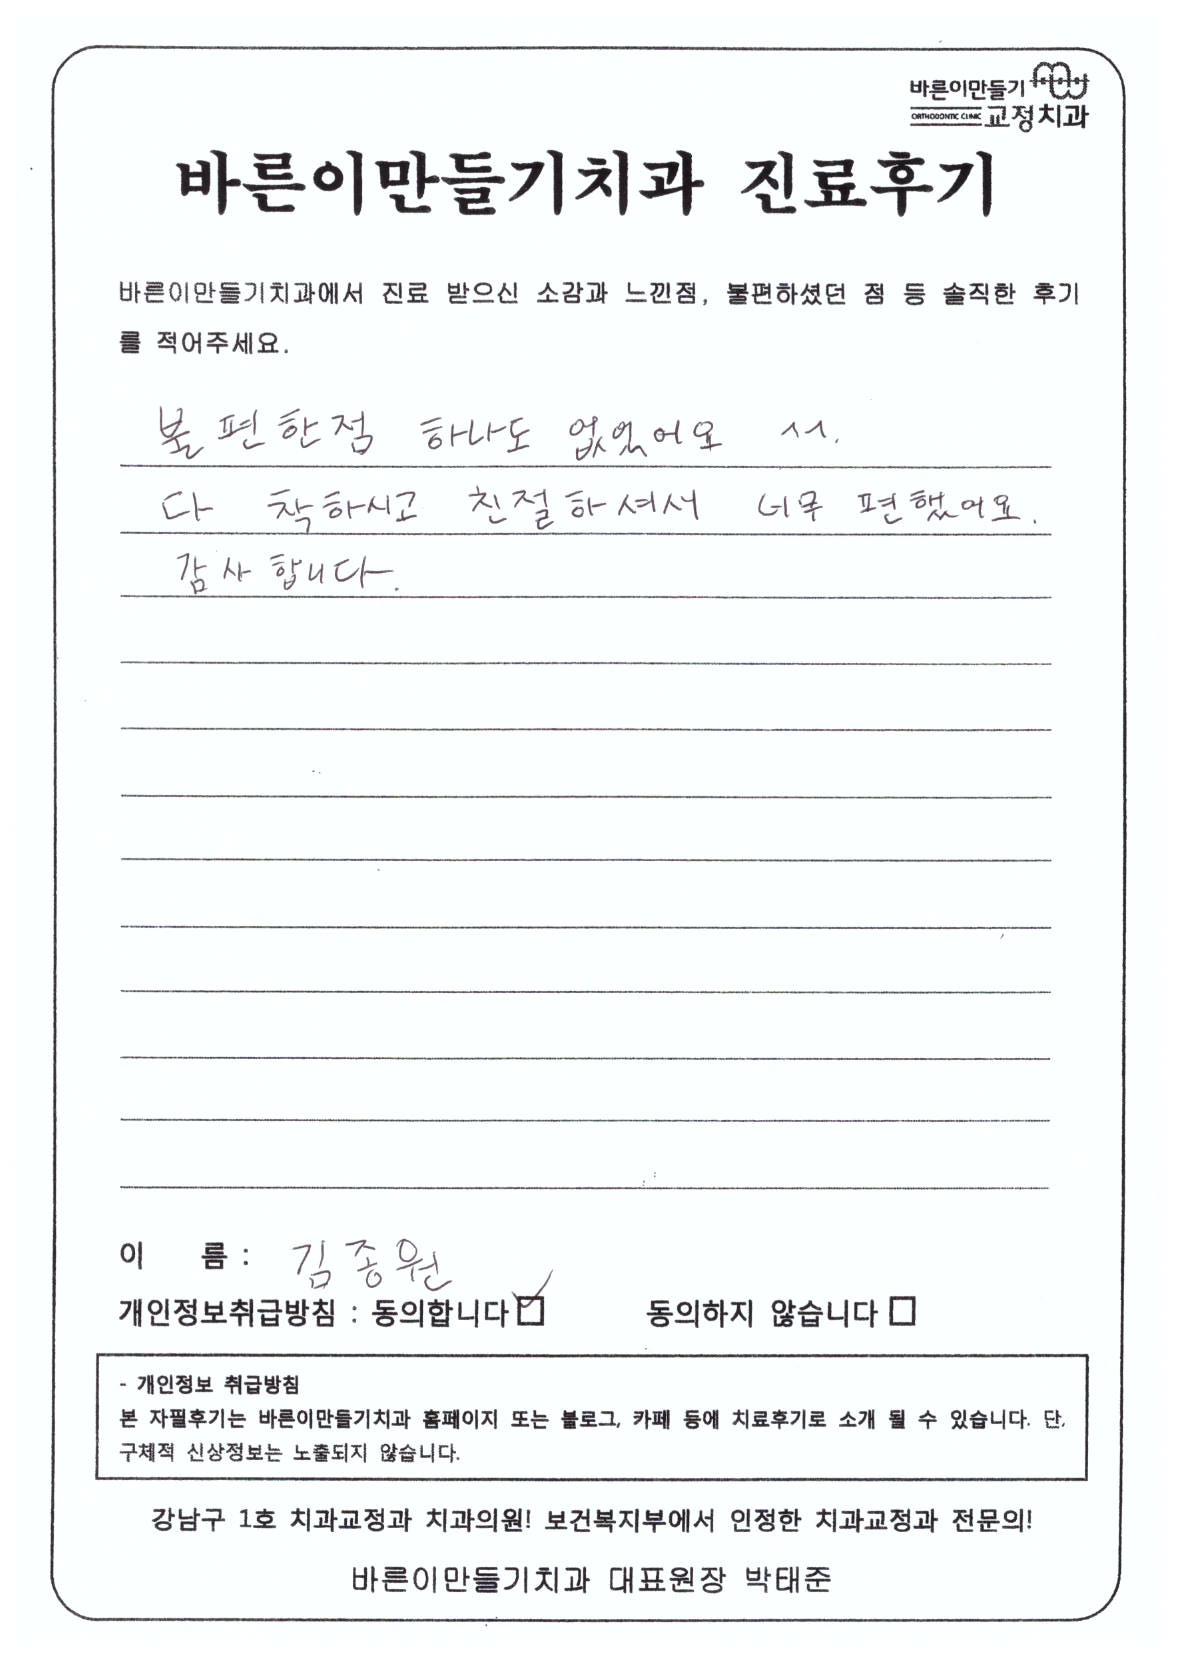 바른이만들기
ORTHODONTIC CLINIC 교정치과
바른이만들기치과 진료후기
바른이만들기치과에서 진료 받으신 소감과 느낀점, 불편하셨던 점 등 솔직한 후기
를 적어주세요.
불편한점 하나도 없었어요 ^^.
다 착하시고 친절하셔서 너무 편했어요.
감사합니다.
이 름 : 김종원
개인정보취급방침 : 동의합니다 ☑ 동의하지 않습니다 ☐
- 개인정보 취급방침
본 자필후기는 바른이만들기치과 홈페이지 또는 블로그, 카페 등에 치료후기로 소개 될 수 있습니다. 단,
구체적 신상정보는 노출되지 않습니다.
강남구 1호 치과교정과 치과의원! 보건복지부에서 인정한 치과교정과 전문의!
바른이만들기치과 대표원장 박태준